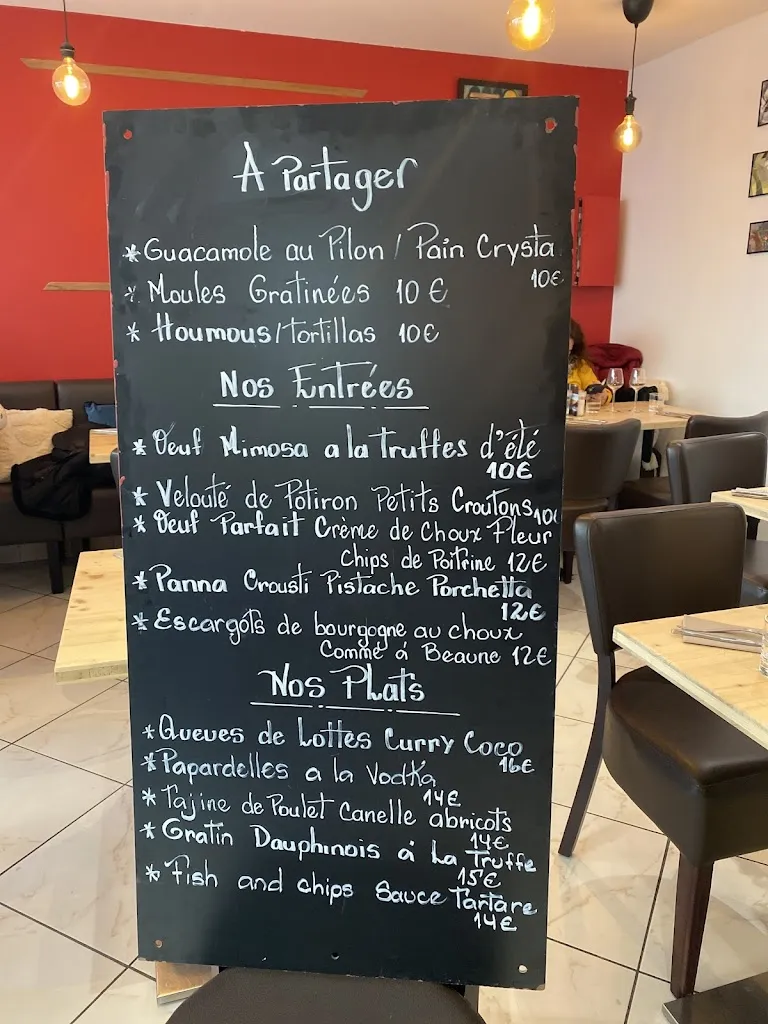 A Partager
* Guacamole au Pilon / Pain Crysta
10€
* Moules Gratinées 10 €
* Houmous/tortillas 10€
Nos Entrées
* Oeuf Mimosa a la truffes d'été
10€
* Velouté de Potiron Petits Croutons 10€
* Oeuf Parfait Crème de Choux Fleur
Chips de Poitrine 12€
* Panna Crousti Pistache Porchetta
12€
* Escargots de bourgogne au choux
Comme à Beaune 12€
Nos Plats
* Queues de Lottes Curry Coco
16€
* Papardelles a la Vodka
14€
* Tajine de Poulet Canelle abricots
14€
* Gratin Dauphinois à La Truffe
15€
* Fish and chips Sauce Tartare
14€